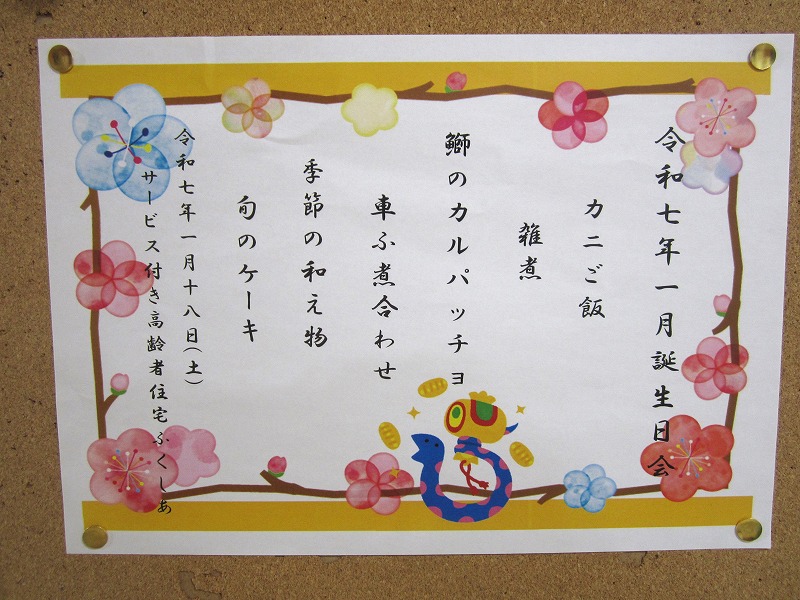 令和七年一月誕生日会
カニご飯
雑煮
鰤のカルパッチョ
車ふ煮合わせ
季節の和え物
旬のケーキ
令和七年一月十八日(土)
サービス付き高齢者住宅ふくしあ